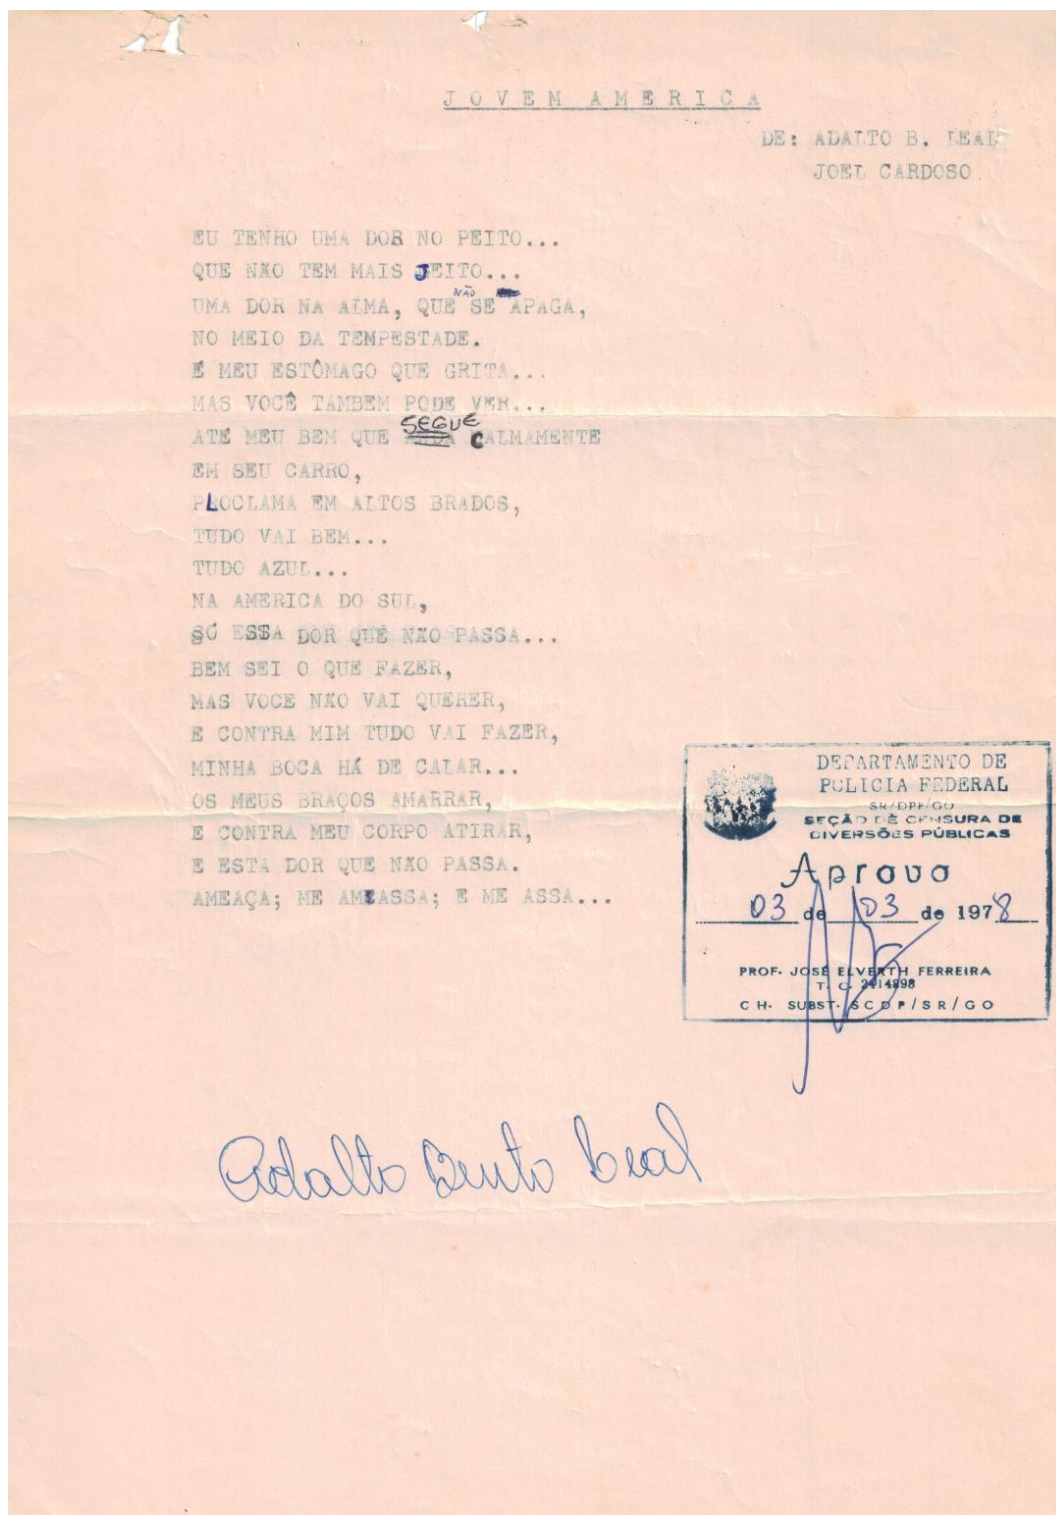 JOVEM AMERICA
DE: ADALTO B. LEAL
JOEL CARDOSO
EU TENHO UMA DOR NO PEITO...
QUE NÃO TEM MAIS JEITO...
UMA DOR NA ALMA, QUE NÃO SE APAGA,
NO MEIO DA TEMPESTADE.
É MEU ESTÔMAGO QUE GRITA...
MAS VOCÊ TAMBEM PODE VER...
ATÉ MEU BEM QUE SEGUE CALMAMENTE
EM SEU CARRO,
PLOCLAMA EM ALTOS BRADOS,
TUDO VAI BEM...
TUDO AZUL...
NA AMERICA DO SUL,
SÓ ESSA DOR QUE NÃO PASSA...
BEM SEI O QUE FAZER,
MAS VOCE NÃO VAI QUERER,
E CONTRA MIM TUDO VAI FAZER,
MINHA BOCA HÁ DE CALAR...
OS MEUS BRAÇOS AMARRAR,
E CONTRA MEU CORPO ATIRAR,
E ESTA DOR QUE NÃO PASSA.
AMEAÇA; ME AMEASSA; E ME ASSA...
DEPARTAMENTO DE
POLICIA FEDERAL
SR/DPF/GO
SEÇÃO DE CENSURA DE
DIVERSÕES PÚBLICAS
Aprovo
03 de 03 de 1978
PROF. JOSÉ ELVERTH FERREIRA
T. C. 2414898
CH. SUBST. SCDP/SR/GO
Adalto Bento Leal